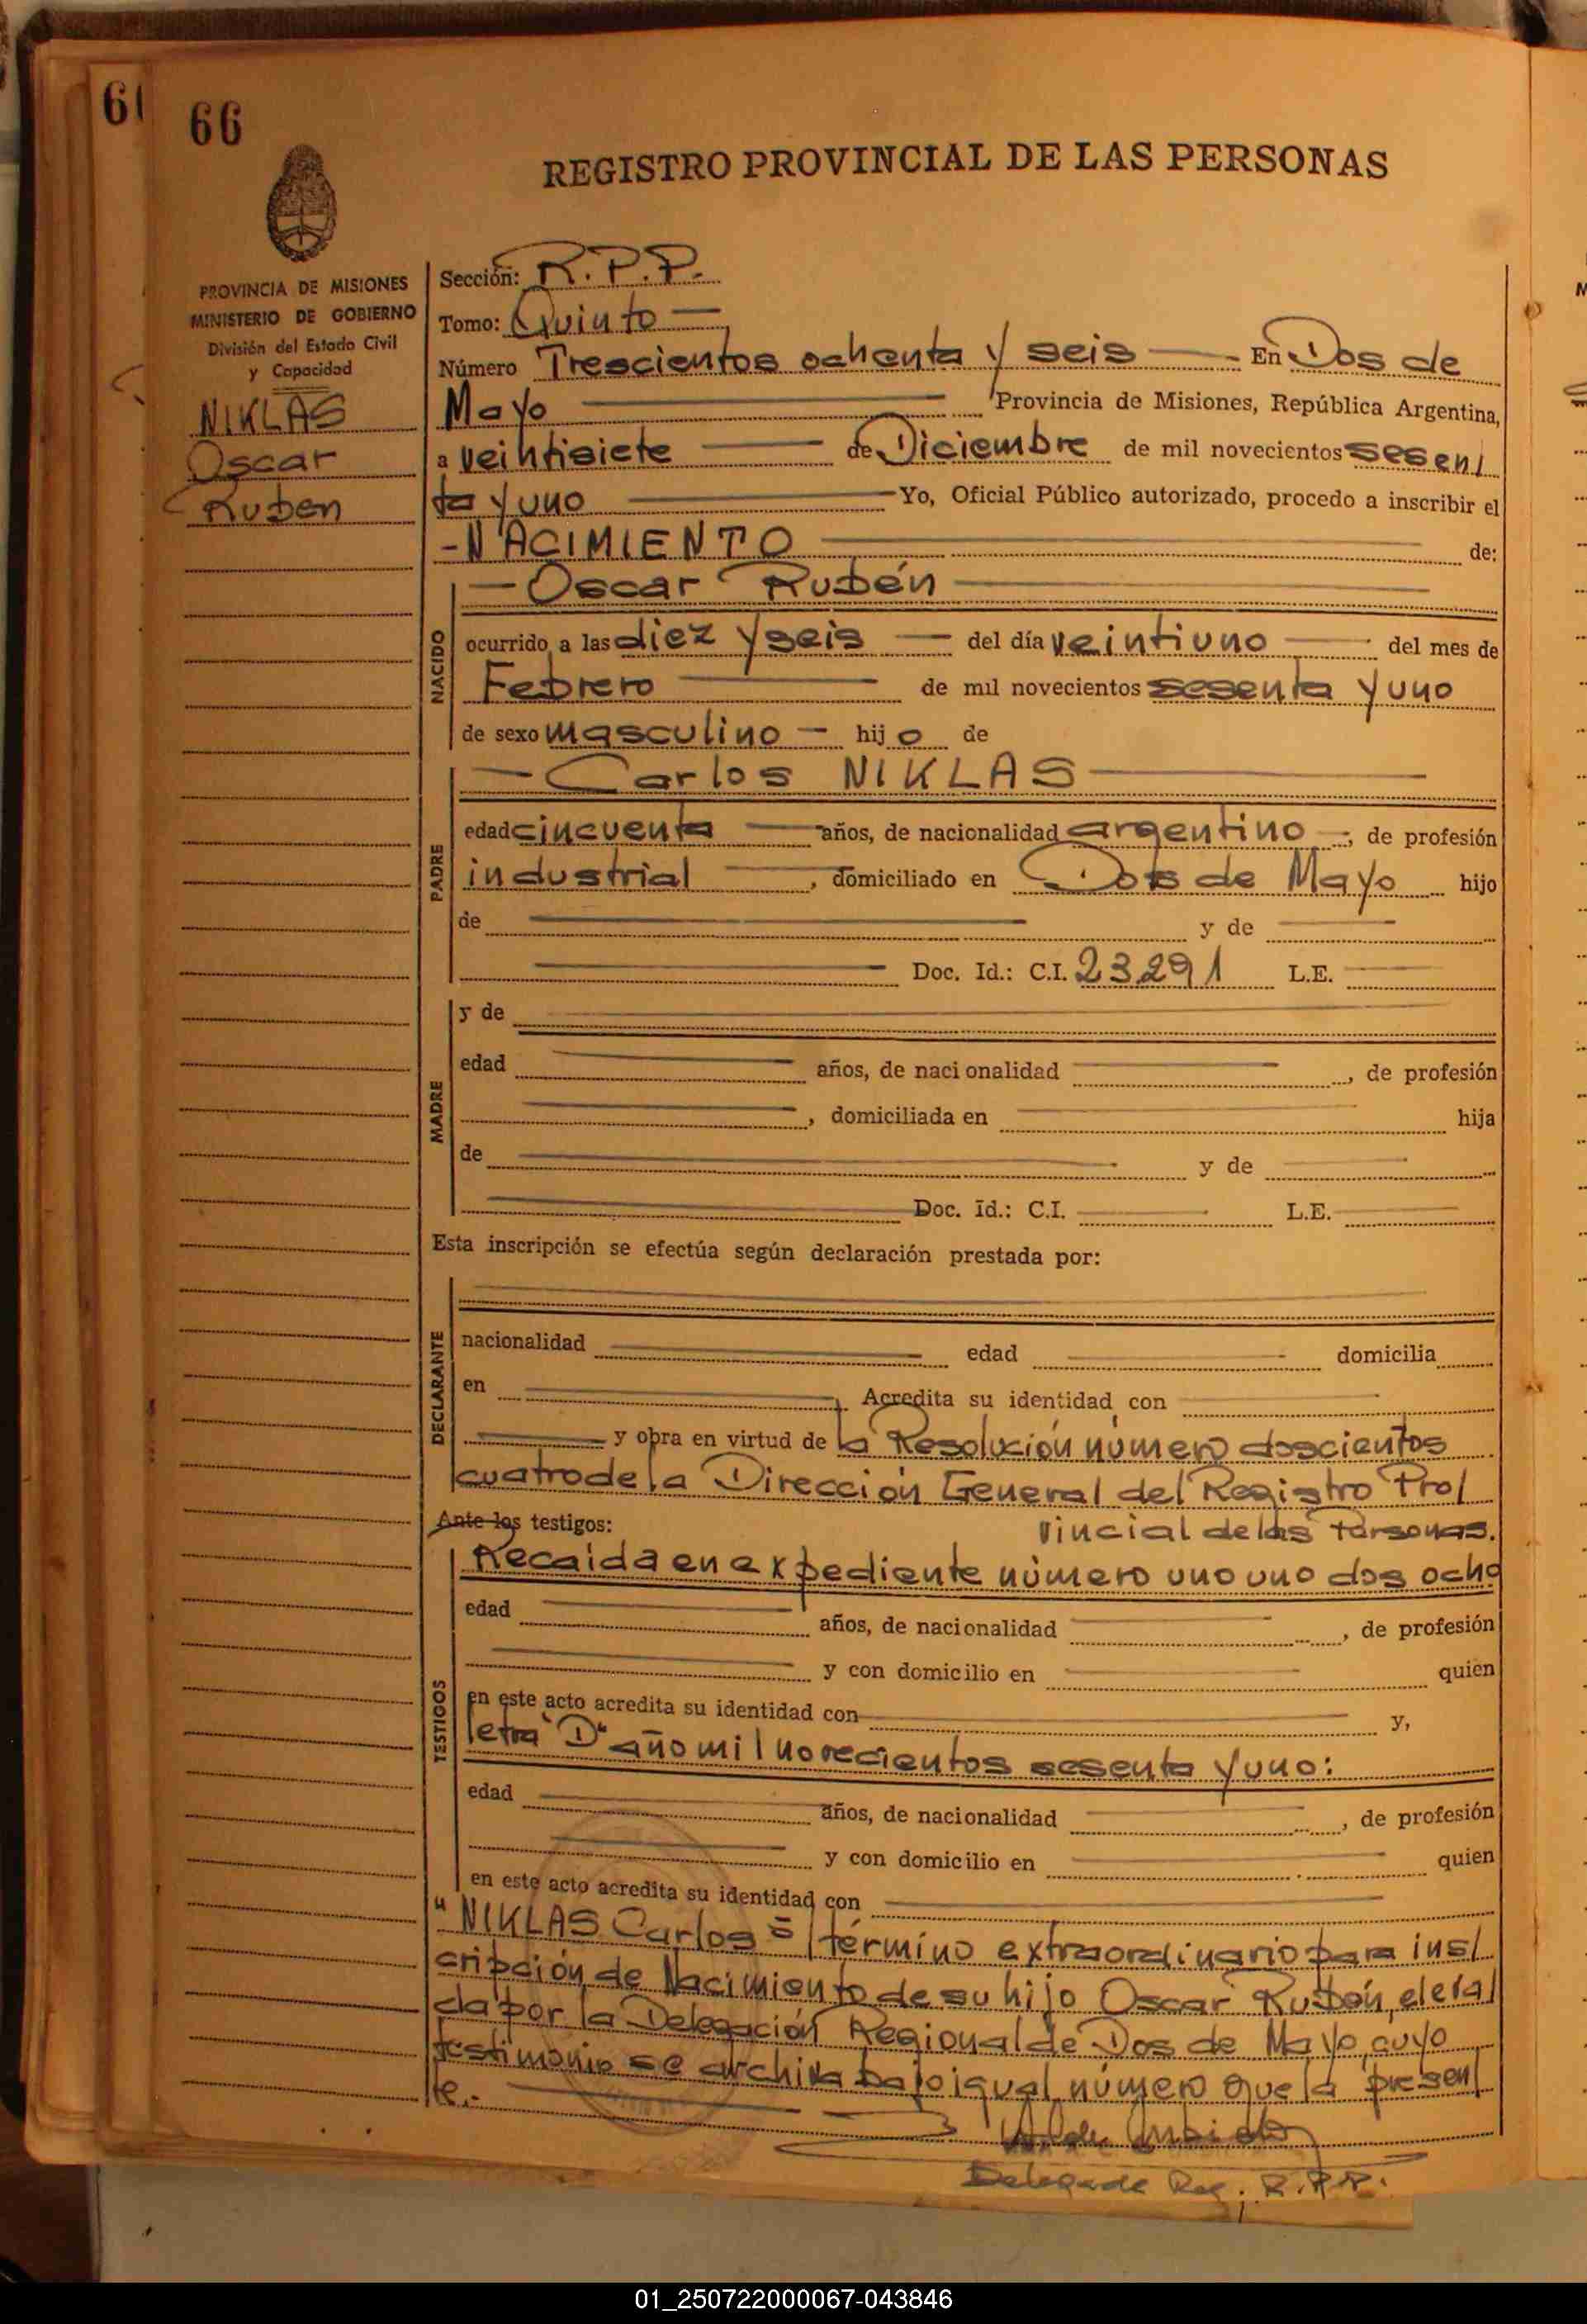 61
66
REGISTRO PROVINCIAL DE LAS PERSONAS
PROVINCIA DE MISIONES
MINISTERIO DE GOBIERNO
División del Estado Civil
y Capacidad
NIKLAS
Oscar
Ruben
Sección: R.P.P.
Tomo: Quinto
Número Trescientos ochenta y seis En Dos de
Mayo Provincia de Misiones, República Argentina,
a veintisiete de Diciembre de mil novecientos sesen/
ta y uno Yo, Oficial Público autorizado, procedo a inscribir el
-NACIMIENTO de:
NACIDO
Oscar Rubén
ocurrido a las diez y seis del día veintiuno del mes de
Febrero de mil novecientos sesenta y uno
de sexo masculino hijo de
PADRE
Carlos NIKLAS
edad cincuenta años, de nacionalidad argentino, de profesión
industrial, domiciliado en Dos de Mayo hijo
de y de
Doc. Id.: C.I. 23291 L.E.
MADRE
y de
edad años, de nacionalidad , de profesión
, domiciliada en hija
de y de
Doc. Id.: C.I. L.E.
Esta inscripción se efectúa según declaración prestada por:
DECLARANTE
nacionalidad edad domicilia
en Acredita su identidad con
y obra en virtud de la Resolución número doscientos
cuatro de la Dirección General del Registro Pro/
Ante los testigos: vincial de las Personas.
TESTIGOS
Recaida en expediente número uno uno dos ocho
edad años, de nacionalidad , de profesión
y con domicilio en quien
en este acto acredita su identidad con y,
letra "D" año mil novecientos sesenta y uno:
edad años, de nacionalidad , de profesión
y con domicilio en quien
en este acto acredita su identidad con
" NIKLAS Carlos = /término extraordinario para ins/
cripción de Nacimiento de su hijo Oscar Rubén, eleva/
da por la Delegación Regional de Dos de Mayo, cuyo
testimonio se archiva bajo igual número que la presen/
te.-
Delegado Reg. R.P.P.
01_250722000067-043846